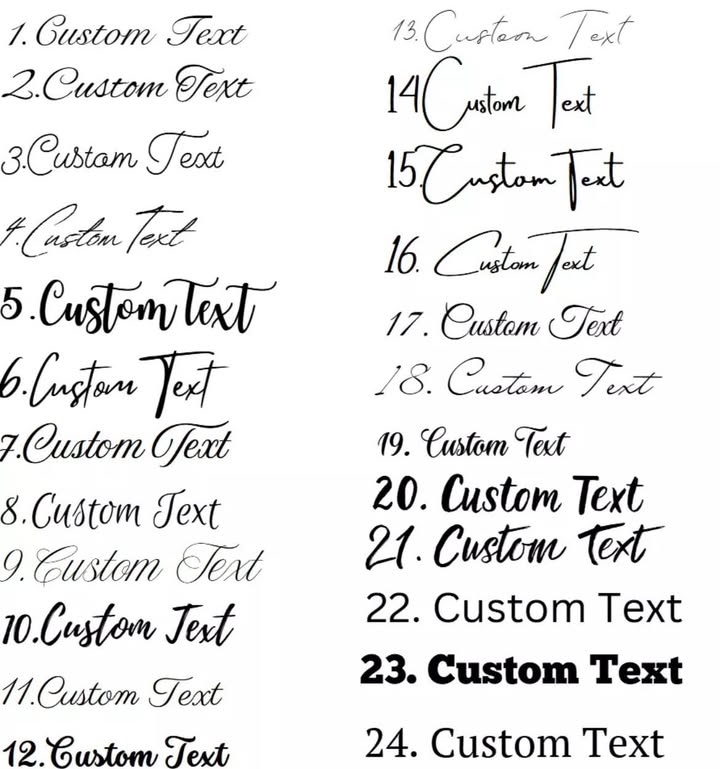 1. Custom Text
2. Custom Text
3. Custom Text
4. Custom Text
5. Custom Text
6. Custom Text
7. Custom Text
8. Custom Text
9. Custom Text
10. Custom Text
11. Custom Text
12. Custom Text
13. Custom Text
14 Custom Text
15. Custom Text
16. Custom Text
17. Custom Text
18. Custom Text
19. Custom Text
20. Custom Text
21. Custom Text
22. Custom Text
23. Custom Text
24. Custom Text